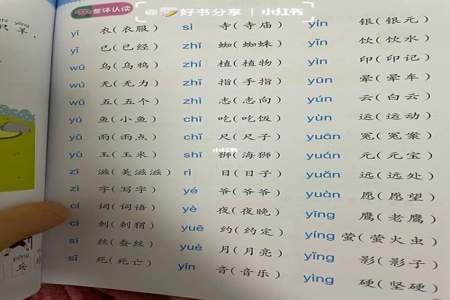 整体认读
好书分享 | 小红书
yī 衣(衣服)
yǐ 已(已经)
wū 乌(乌鸦)
wú 无(无力)
wǔ 五(五个)
yú 鱼(小鱼)
yǔ 雨(雨点)
yù 玉(玉米)
zī 滋(美滋滋)
zì 字(写字)
cí 词(词语)
cì 刺(刺猬)
sī 丝(蚕丝)
sǐ 死(死亡)
sì 寺(寺庙)
zhī 蜘(蜘蛛)
zhí 植(植物)
zhǐ 指(手指)
zhì 志(志向)
chī 吃(吃饭)
chǐ 尺(尺子)
小红书
shī 狮(海狮)
rì 日(日子)
yé 爷(爷爷)
yè 夜(夜晚)
yuē 约(约定)
yuè 月(月亮)
yīn 音(音乐)
yín 银(银元)
yǐn 饮(饮水)
yìn 印(印记)
yūn 晕(晕车)
yún 云(白云)
yùn 运(运动)
yuān 冤(冤案)
yuán 元(元宝)
yuǎn 远(远处)
yuàn 愿(愿望)
yīng 鹰(老鹰)
yíng 萤(萤火虫)
yǐng 影(影子)
yìng 硬(坚硬)
兵